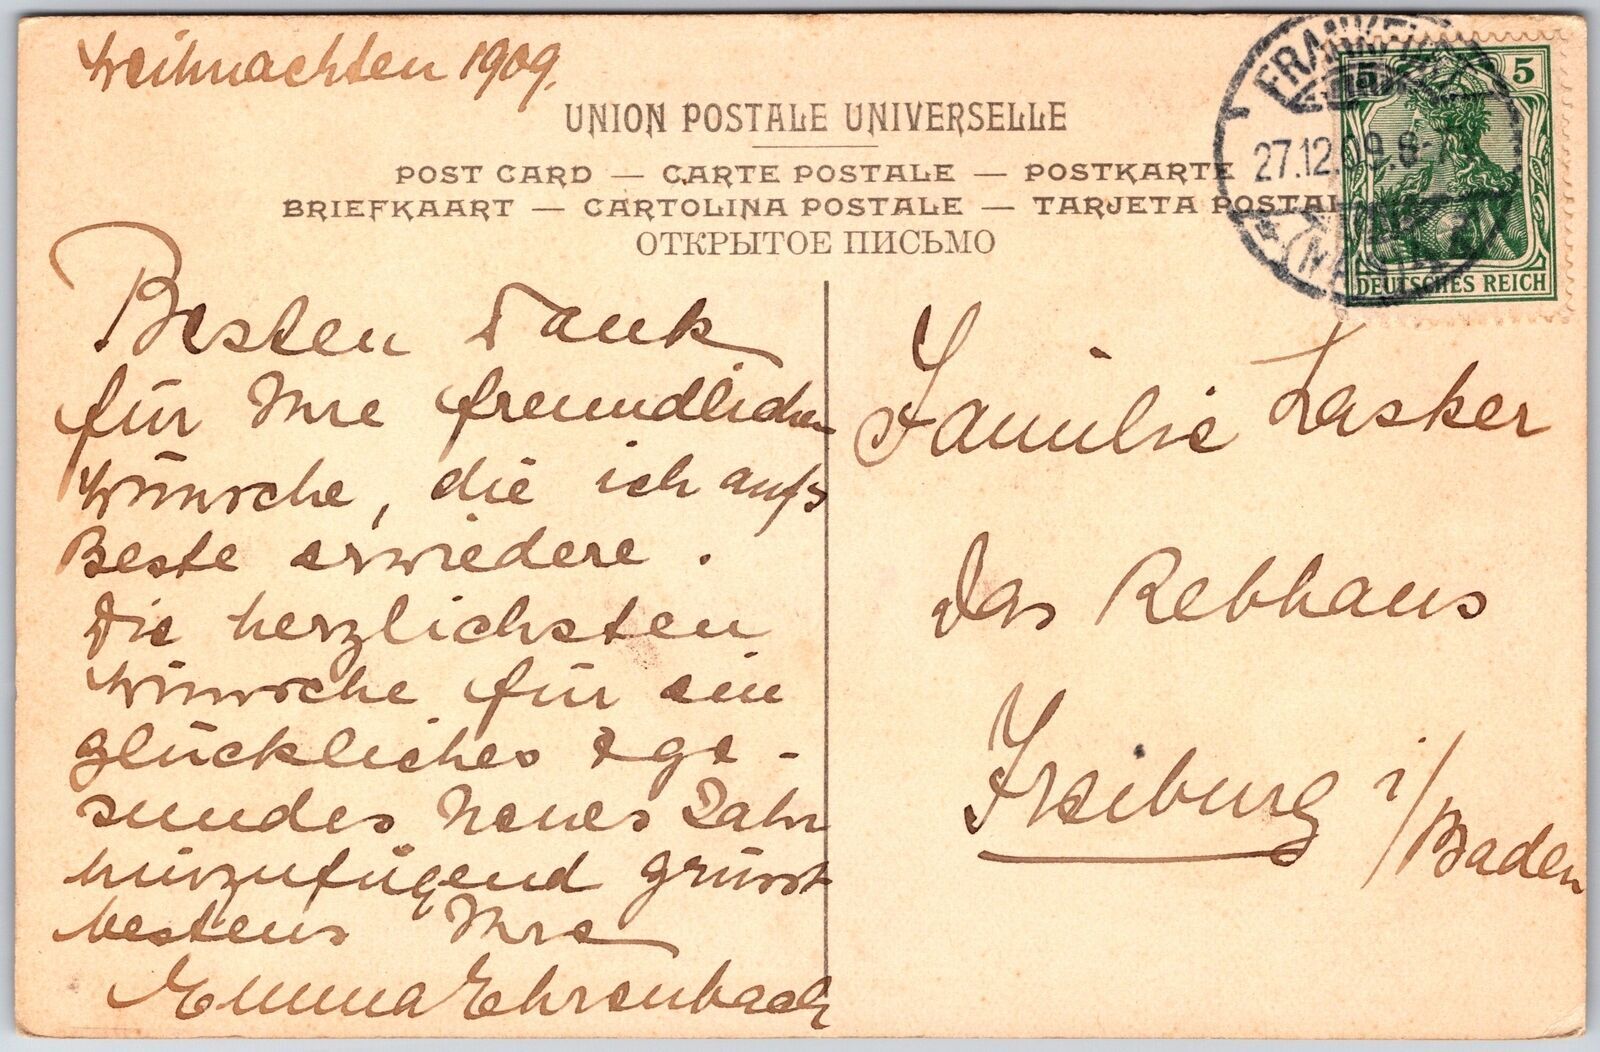 Weihnachten 1909.
UNION POSTALE UNIVERSELLE
POST CARD — CARTE POSTALE — POSTKARTE
BRIEFKAART — CARTOLINA POSTALE — TARJETA POSTAL
ОТКРЫТОЕ ПИСЬМО
FRANKFURT
27.12.09.8-
(MAIN)
5 5
DEUTSCHES REICH
Besten Dank
für Ihre freundlichen
Wünsche, die ich aufs
Beste erwiedere.
Die herzlichsten
Wünsche für ein
glückliches & ge-
sundes Neues Jahr
hinzufügend grüsst
bestens Ihre
Emma Ehrenbach
Familie Lasker
Das Rebhaus
Freiburg i/
Baden